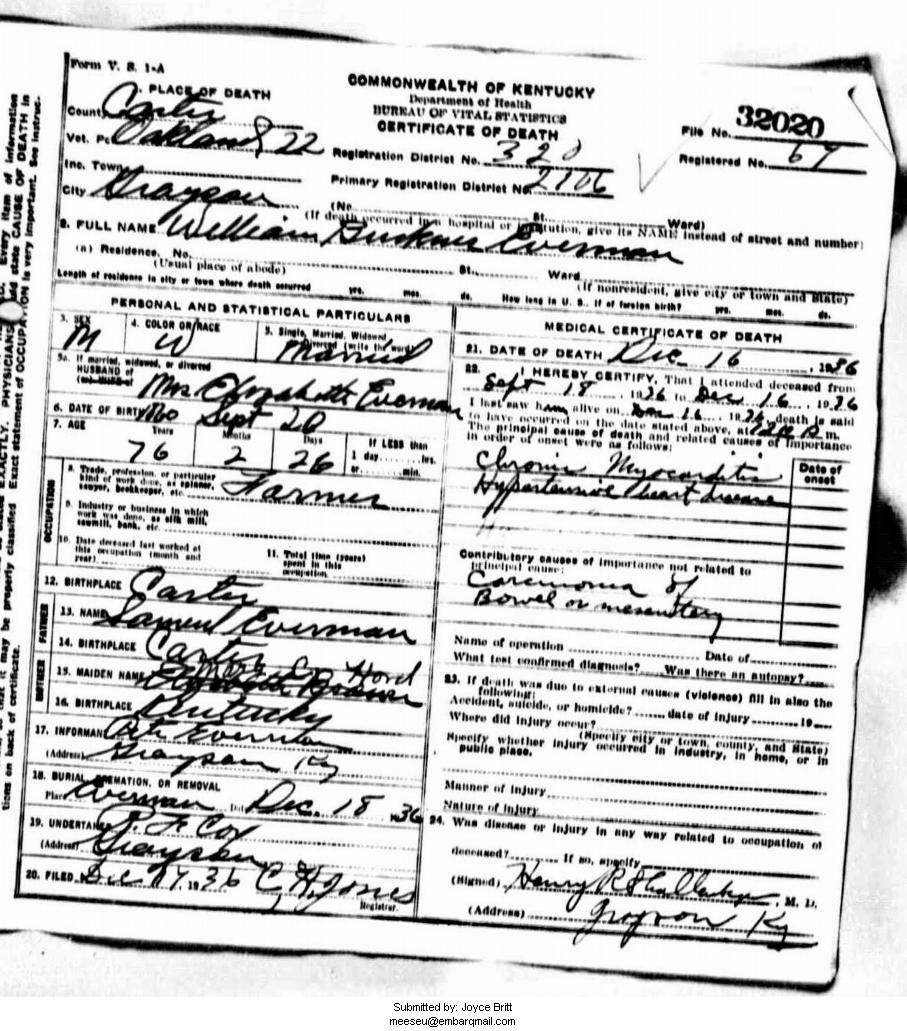 Form V. S. 1-A
COMMONWEALTH OF KENTUCKY
Department of Health
BUREAU OF VITAL STATISTICS
CERTIFICATE OF DEATH
1. PLACE OF DEATH
County Carter
Vot. Pct Oakland 22
Inc. Town
City Grayson
Registration District No. 320
Primary Registration District No. 2166
File No. 32020
Registered No. 67
(No. St. Ward)
(If death occurred in a hospital or institution, give its NAME instead of street and number)
2. FULL NAME William Everman
(a) Residence. No. St. Ward
(Usual place of abode) (If nonresident, give city or town and State)
Length of residence in city or town where death occurred yrs. mos. ds. How long in U. S., if of foreign birth? yrs. mos. ds.
PERSONAL AND STATISTICAL PARTICULARS
3. SEX M
4. COLOR OR RACE W
5. Single, Married, Widowed, Divorced (write the word) Married
5a. If married, widowed, or divorced
HUSBAND of
(or) WIFE of Mrs. Elizabeth Everman
6. DATE OF BIRTH 1860 Sept 20
7. AGE Years 76 Months 2 Days 26 If LESS than 1 day hrs. or min.
OCCUPATION
8. Trade, profession, or particular kind of work done, as spinner, sawyer, bookkeeper, etc. Farmer
9. Industry or business in which work was done, as silk mill, sawmill, bank, etc.
10. Date deceased last worked at this occupation (month and year)
11. Total time (years) spent in this occupation
12. BIRTHPLACE Carter
FATHER
13. NAME Samuel Everman
14. BIRTHPLACE Carter
MOTHER
15. MAIDEN NAME Hord
16. BIRTHPLACE Kentucky
17. INFORMANT Everman
(Address) Grayson Ky
18. BURIAL, CREMATION, OR REMOVAL
Place Everman Date Dec. 18 1936
19. UNDERTAKER Cox
(Address) Grayson
20. FILED Dec 17 1936 C. H. Jones
Registrar.
MEDICAL CERTIFICATE OF DEATH
21. DATE OF DEATH Dec 16, 1936
22. I HEREBY CERTIFY, That I attended deceased from
Sept 18, 1936 to Dec 16, 1936
I last saw him alive on Dec 16, 1936, death is said
to have occurred on the date stated above, at m.
The principal cause of death and related causes of importance
in order of onset were as follows:
Date of onset
Chronic Myocarditis
Hypertensive heart disease
Contributory causes of importance not related to
principal cause:
Carcinoma of
Bowel or mesentery
Name of operation Date of
What test confirmed diagnosis? Was there an autopsy?
23. If death was due to external causes (violence) fill in also the
following:
Accident, suicide, or homicide? date of injury 19
Where did injury occur?
(Specify city or town, county, and State)
Specify whether injury occurred in industry, in home, or in
public place.
Manner of injury
Nature of injury
24. Was disease or injury in any way related to occupation of
deceased? If so, specify
(Signed) Henry R , M. D.
(Address) Grayson Ky
Submitted by: Joyce Britt
meeseu@embarqmail.com